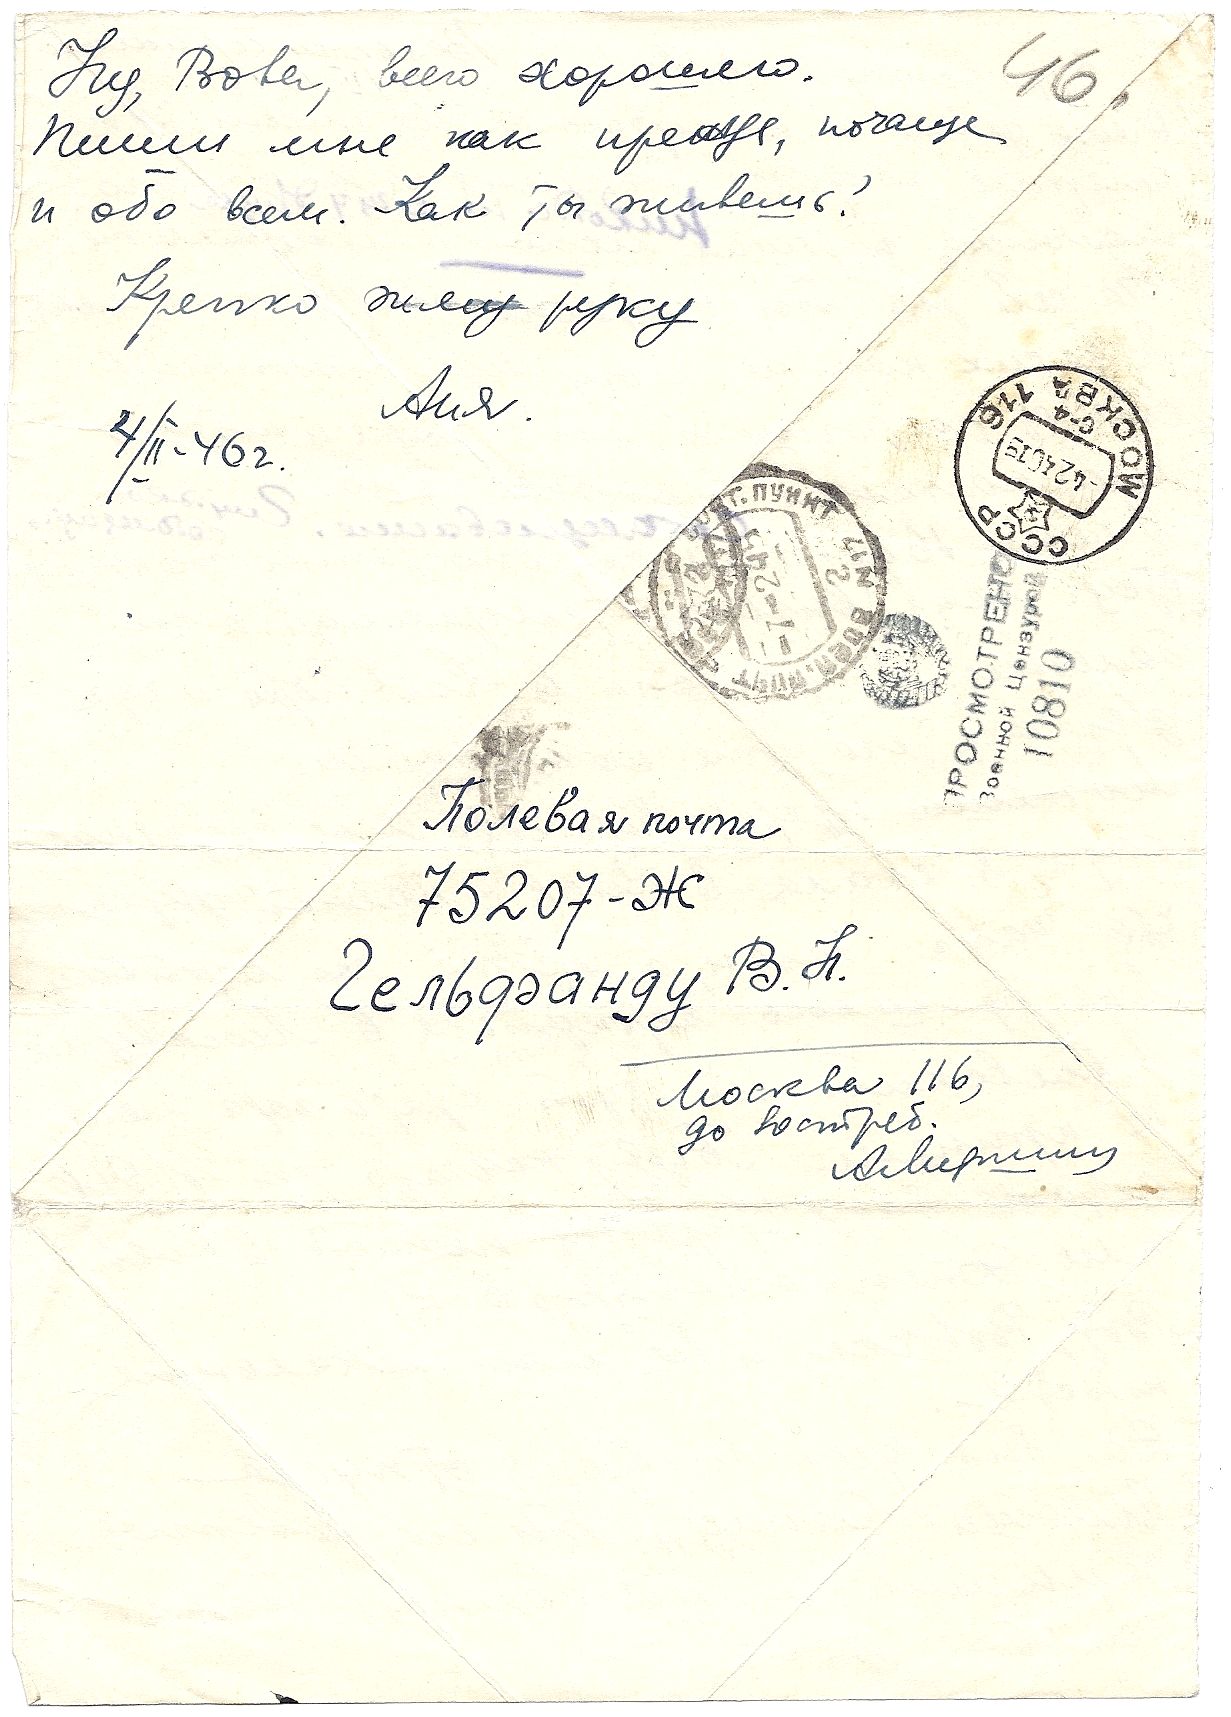 Ну, Вова, всего хорошего.
Пиши мне как прежде, почаще
и обо всем. Как ты живешь?
Крепко жму руку
Аня.
4/II-46г.
46.
МОСКВА 116
С-4
-4246
СССР
ПОЧТ. ПУНКТ
ПРОСМОТРЕНО
Военной Цензурой
10810
Полевая почта
75207-Ж
Гельфанду В. Н.
Москва 116,
до востреб.